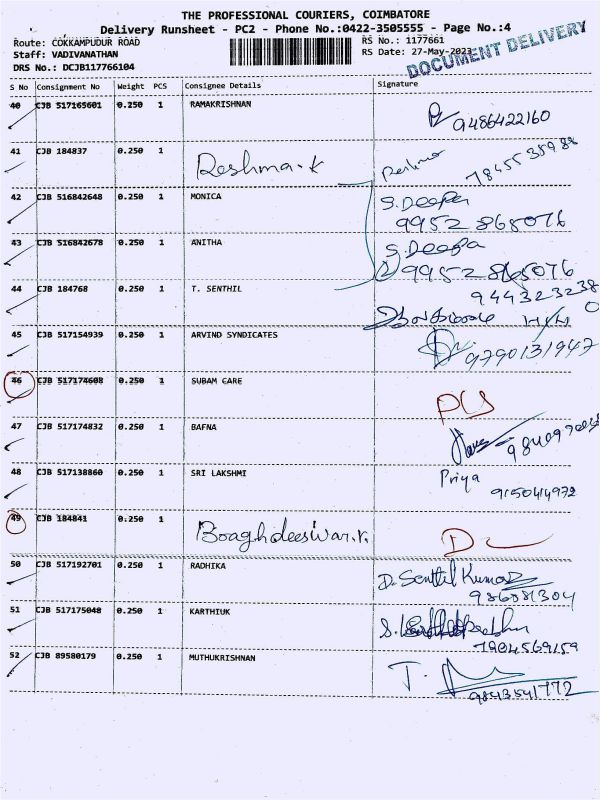 THE PROFESSIONAL COURIERS, COIMBATORE
Delivery Runsheet - PC2 - Phone No.:0422-3505555 - Page No.:4
Route: COKKAMPUDUR ROAD
RS No.: 1177661
Staff: VADIVANATHAN
RS Date: 27-May-2023
DOCUMENT DELIVERY
DRS No.: DCJB117766104
S No Consignment No Weight PCS Consignee Details Signature
40 CJB 517165601 0.250 1 RAMAKRISHNAN
9486422160
41 CJB 184837 0.250 1 Reshma.k
42 CJB 516842648 0.250 1 MONICA S.Deepa
9952 865076
43 CJB 516842678 0.250 1 ANITHA S.Deepa
9952865076
44 CJB 184768 0.250 1 T. SENTHIL
45 CJB 517154939 0.250 1 ARVIND SYNDICATES
9790131947
46 CJB 517174608 0.250 1 SUBAM CARE
47 CJB 517174832 0.250 1 BAFNA
48 CJB 517138860 0.250 1 SRI LAKSHMI Priya
9150414972
49 CJB 184841 0.250 1 Boaghdeeswar.k
50 CJB 517192701 0.250 1 RADHIKA D. Senthil Kumar
51 CJB 517175048 0.250 1 KARTHIUK
7904569159
52 CJB 89580179 0.250 1 MUTHUKRISHNAN
9843541772